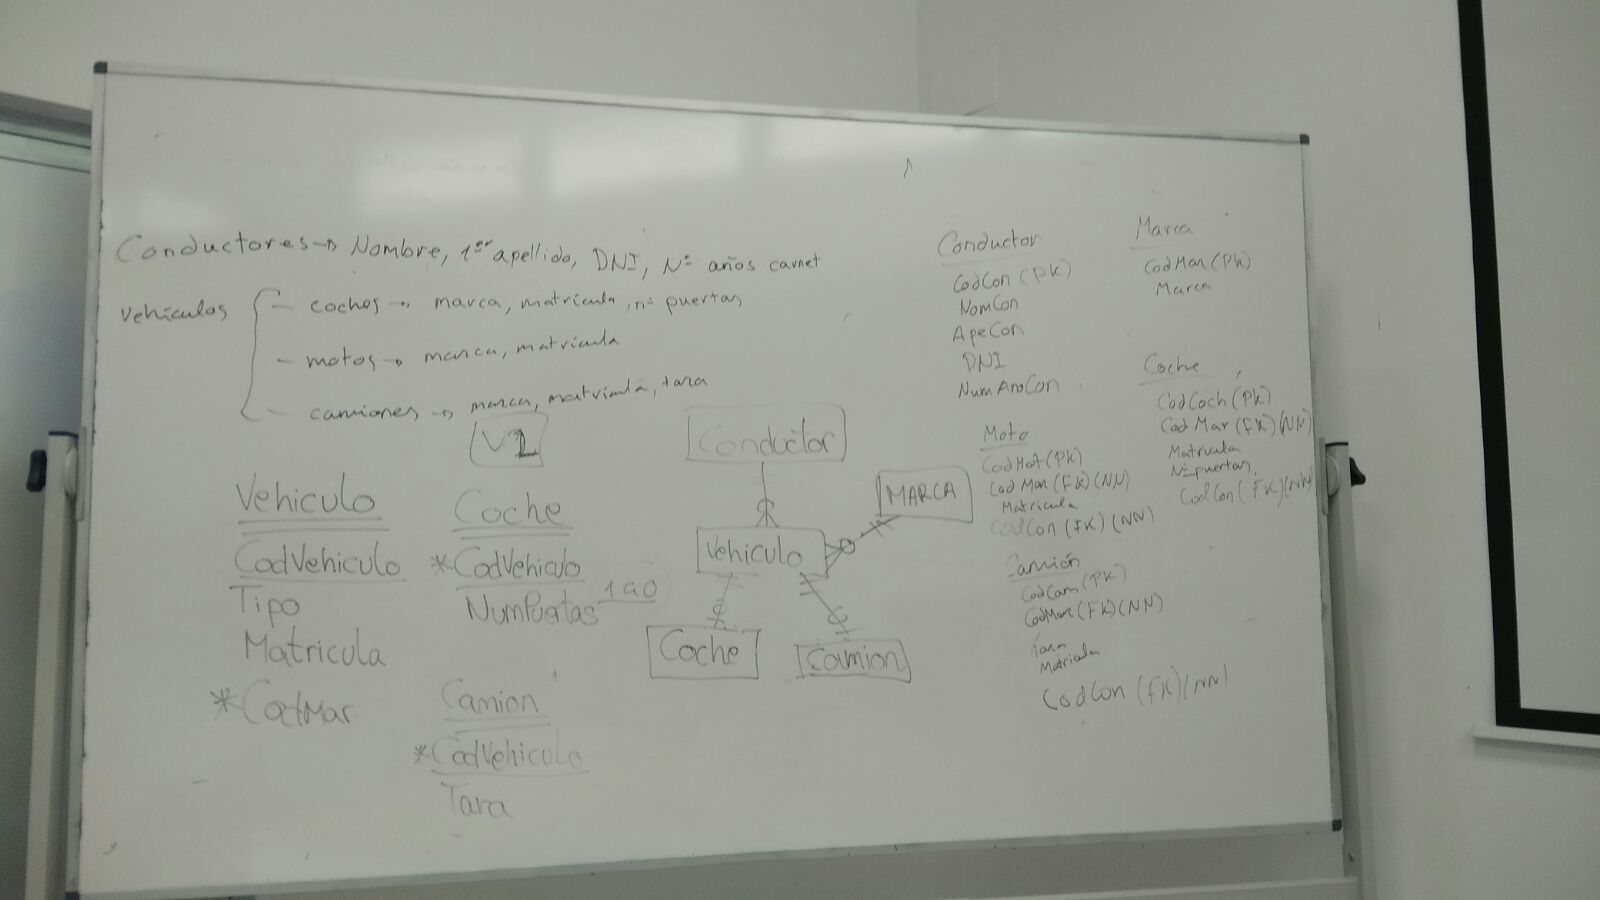 Conductores → Nombre, 1er apellido, DNI, Nº años carnet
vehículos
- coches → marca, matrícula, nº puertas
- motos → marca, matrícula
- camiones → marca, matrícula, tara
V2
Vehiculo
CodVehiculo
Tipo
Matricula
*CodMar
Coche
*CodVehiculo
NumPuertas
1 a 0
Camion
*CodVehiculo
Tara
Conductor
MARCA
Vehiculo
Coche
Camion
Conductor
CodCon (PK)
NomCon
ApeCon
DNI
NumAnoCon
Marca
CodMar (PK)
Marca
Moto
CodMot (PK)
Cod Mar (FK) (NN)
Matricula
CodCon (FK) (NN)
Coche
CodCoch (PK)
Cod Mar (FK) (NN)
Matricula
Nº puertas
CodCon (FK) (NN)
Camión
CodCam (PK)
CodMar (FK) (NN)
Tara
Matricula
CodCon (FK) (NN)